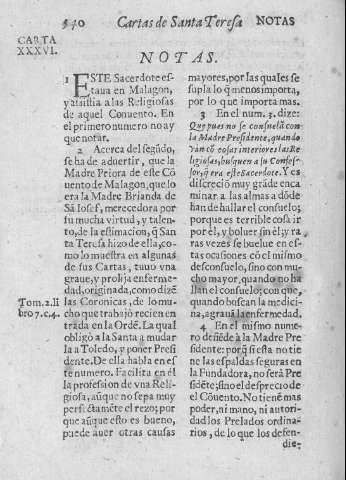 540 Cartas de Santa Teresa NOTAS
CARTA
XXXVI.
NOTAS.
1 ESTE Sacerdote es-
taua en Malagon,
y assistia a las Religiosas
de aquel Conuento. En
el primero numero no ay
que notar.
2 Acerca del segũdo,
se ha de aduertir, que la
Madre Priora de este Cõ
uento de Malagon, que lo
era la Madre Brianda de
Sã Iosef, merecedora por
su mucha virtud, y talen-
to, de la estimacion, q̃ San
ta Teresa hizo de ella, co-
mo lo muestra en algunas
de sus Cartas, tuuo vna
graue, y prolija enferme-
dad, originada, como dizẽ
las Coronicas, de lo mu-
cho que trabajò recien en
trada en la Ordẽ. La qual
obligò a la Santa a mudar
la a Toledo, y poner Presi
dente. De ella habla en es
te numero. Facilita en èl
la profession de vna Reli-
giosa, aũque no sepa muy
perfectamẽte el rezo; por
que aũque esto es bueno,
puede auer otras causas
Tom. 2. li
bro 7. c. 4.
mayores, por las quales se
supla lo q̃ menos importa,
por lo que importa mas.
3 En el num. 3. dize:
Que pues no se consuelã con
la Madre Presidente, quando
vàn cõ cosas interiores las Re
ligiosas, busquen a su Confes-
sor, q̃ era este Sacerdote. Y es
discreciõ muy grãde enca
minar a las almas a dõde
han de hallar el consuelo;
porque es terrible cosa ir
por èl, y boluer sin èl; y ra
ras vezes se buelue en es-
tas ocasiones cõ el mismo
desconsuelo, sino con mu-
cho mayor, quando no ha
llan el consuelo; con que,
quando buscan la medici-
na, agrauã la enfermedad.
4 En el mismo nume-
ro defiẽde à la Madre Pre
sidente: porq̃ si esta no tie
ne las espaldas seguras en
la Fundadora, no serà Pre
sidẽte; sino el desprecio de
el Cõuento. No tienẽ mas
poder, ni mano, ni autori-
dad los Prelados ordina-
rios, de lo que los defen-
die-